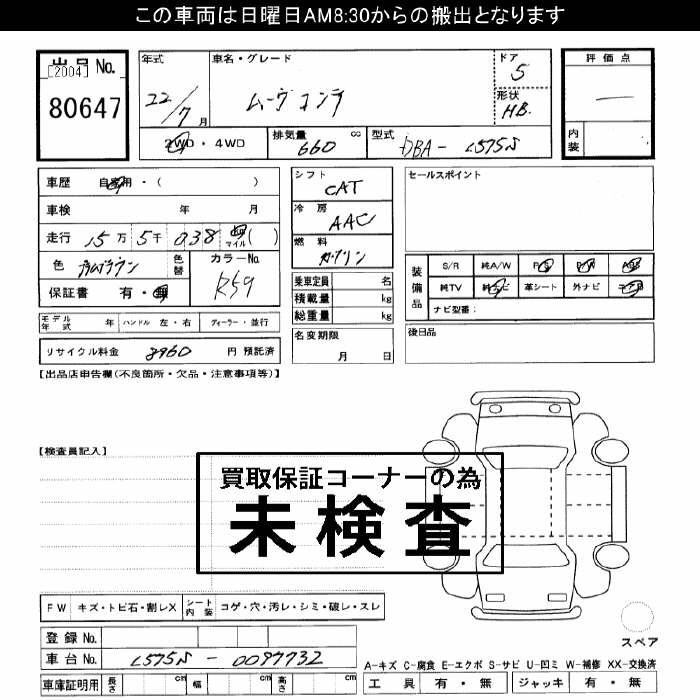 この車両は日曜日AM8:30からの搬出となります
出品 No.
[2004]
80647
年式
22/7 月
車名・グレード
ムーヴ コンテ
ドア
5
形状
HB
評価点
―
内装
2WD・4WD
排気量 660 cc
型式 DBA- L575S
車歴 自家用・( )
車検 年 月
走行 15万 5千 038 マイル ( )
色
色替
カラーNo.
R59
保証書 有・無
シフト CAT
冷房 AAC
燃料 ガソリン
乗車定員 名
積載量 kg
総重量 kg
名変期限
月 日
セールスポイント
装備品
S/R 純A/W P/S P/W A/B
純TV 純ナビ 革シート 外ナビ
ナビ型番:
後日品
モデル年式 年 ハンドル 左・右 ディーラー・並行
リサイクル料金 8960 円 預託済
【出品店申告欄(不良箇所・欠品・注意事項等)】
【検査員記入】
買取保証コーナーの為
未検査
FW キズ・トビ石・割レX シート内装 コゲ・穴・汚レ・シミ・破レ・スレ
スペア
登録 No.
車台 No. L575S - 0097732
A-キズ C-腐食 E-エクボ S-サビ U-凹ミ W-補修 XX-交換済
車庫証明用 長さ cm 幅 cm 高さ cm
工具 有・無 ジャッキ 有・無